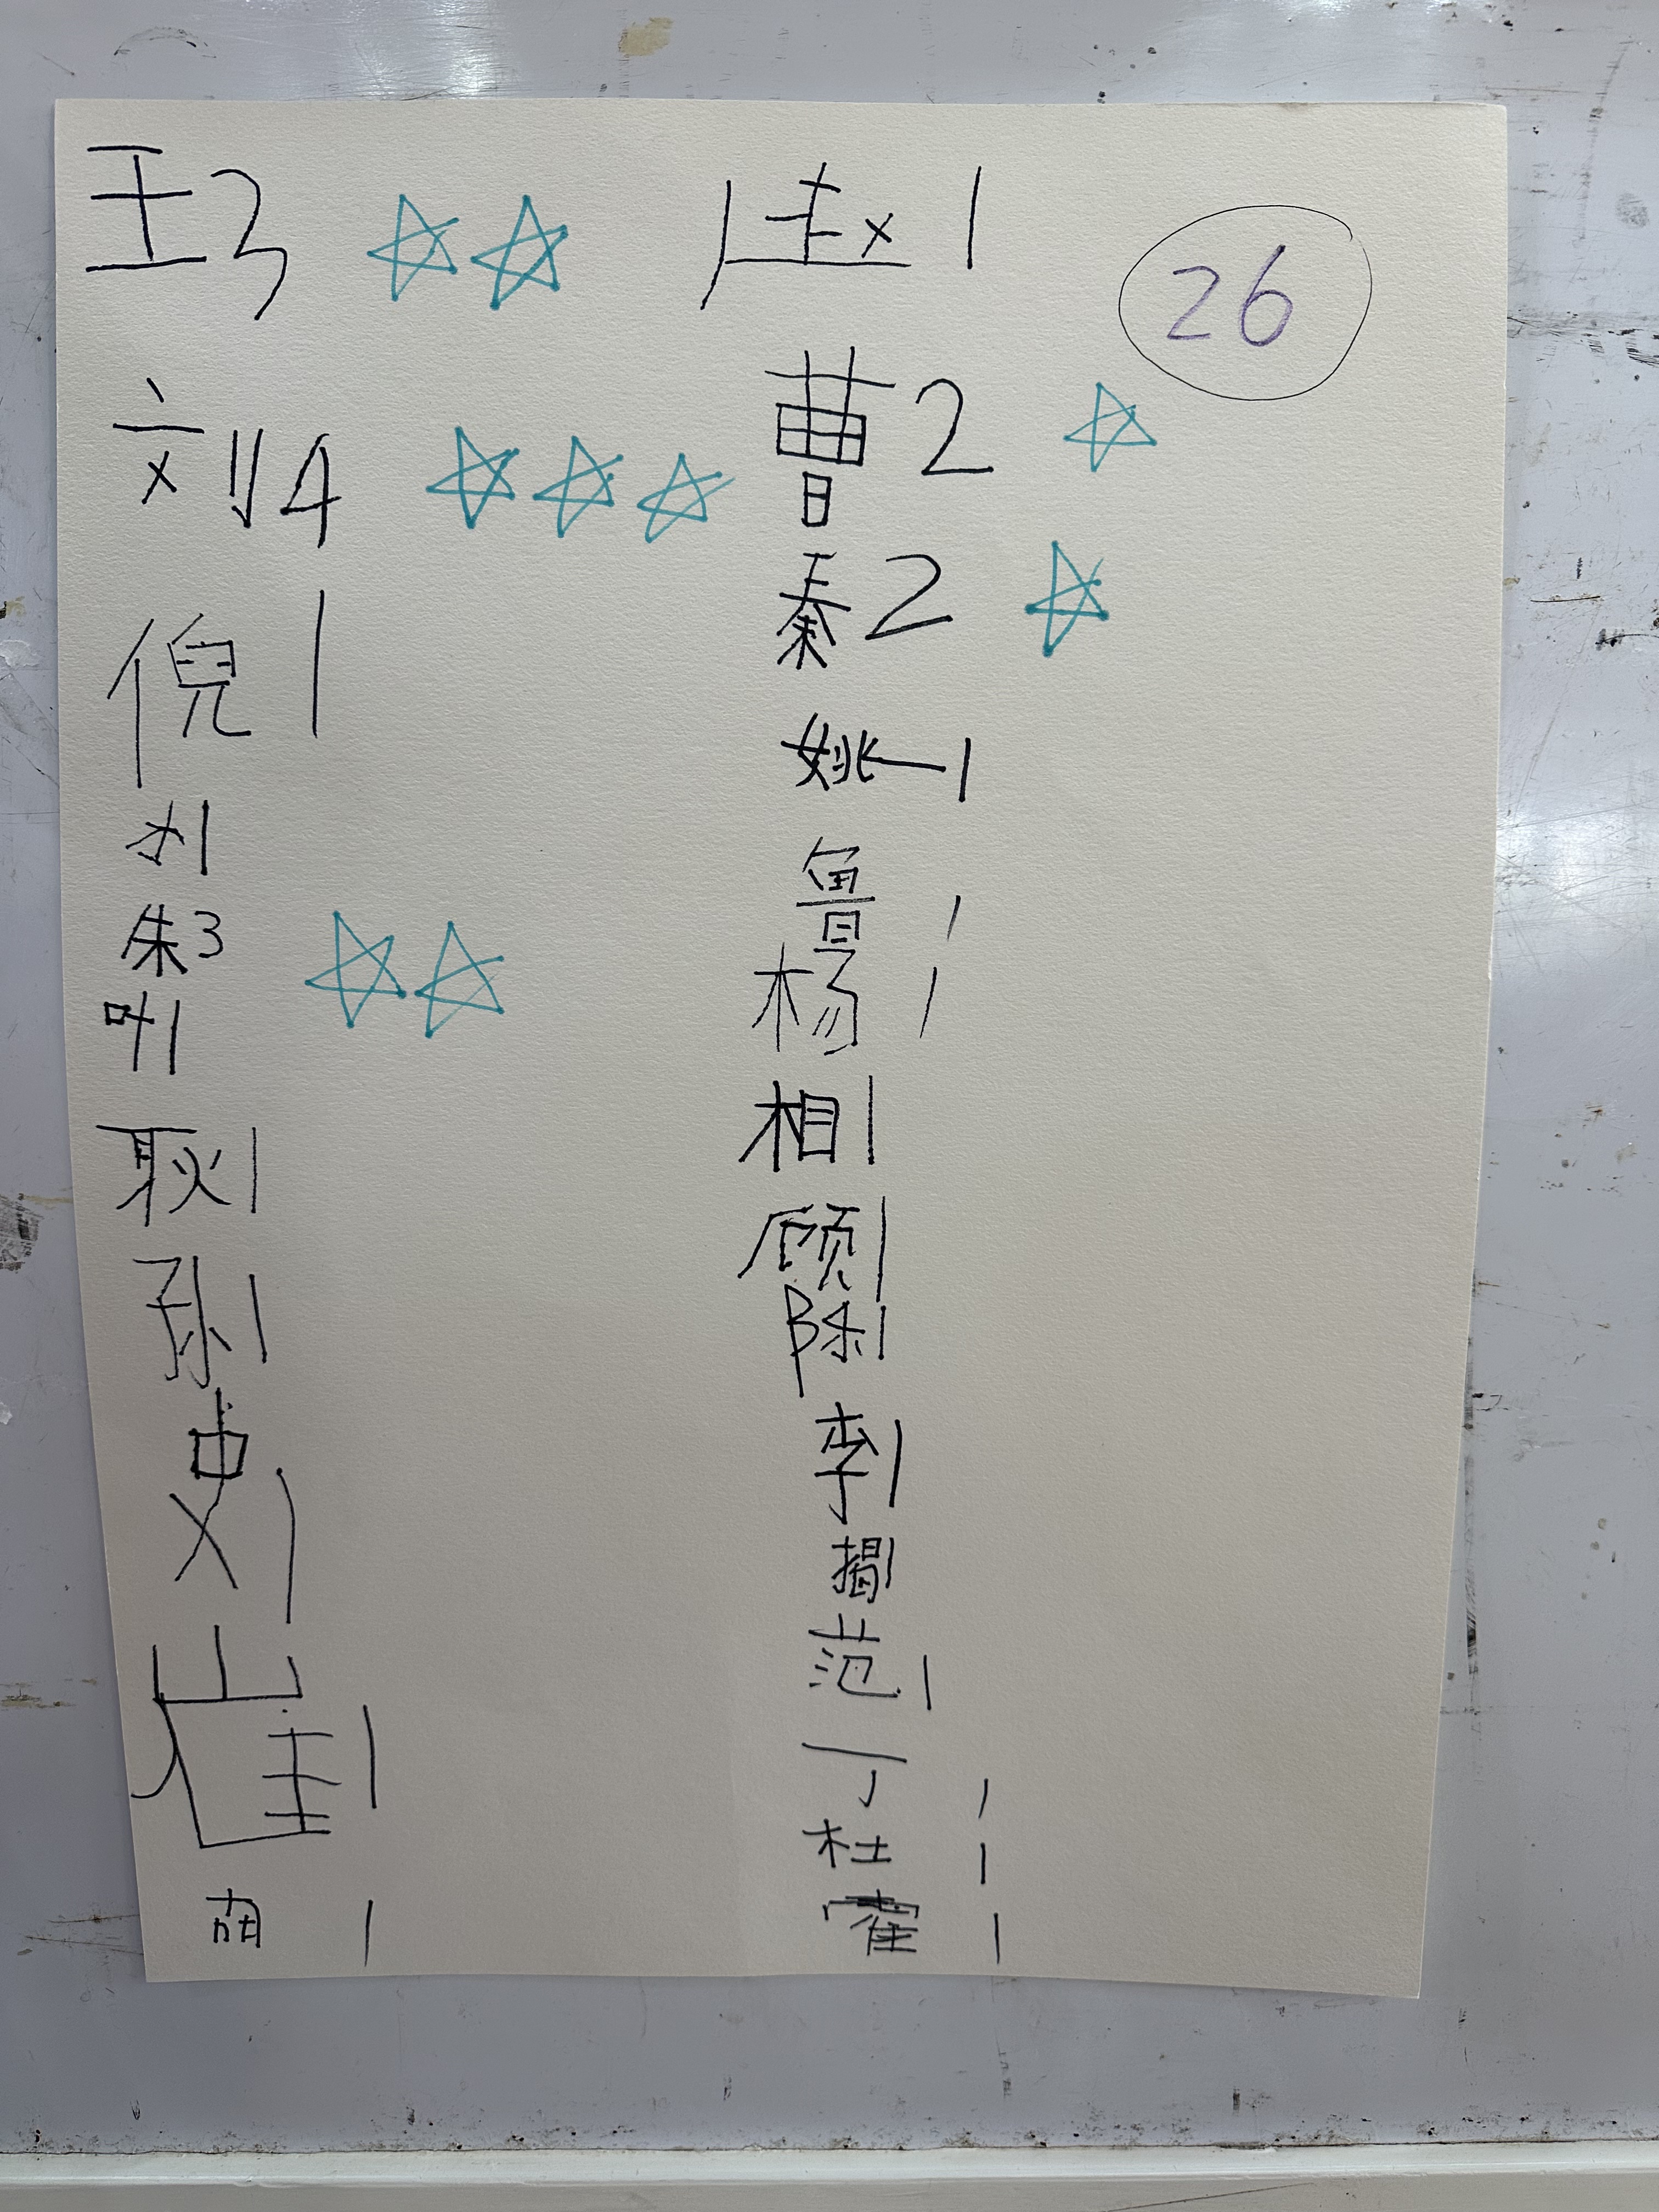 王3
刘4
倪1
朱3
叶1
耿1
孙1
史1
崔1
赵1
26
曹2
秦2
姚1
鲁1
杨1
相1
顾1
陈1
李1
揭1
范1
丁1
杜1
霍1